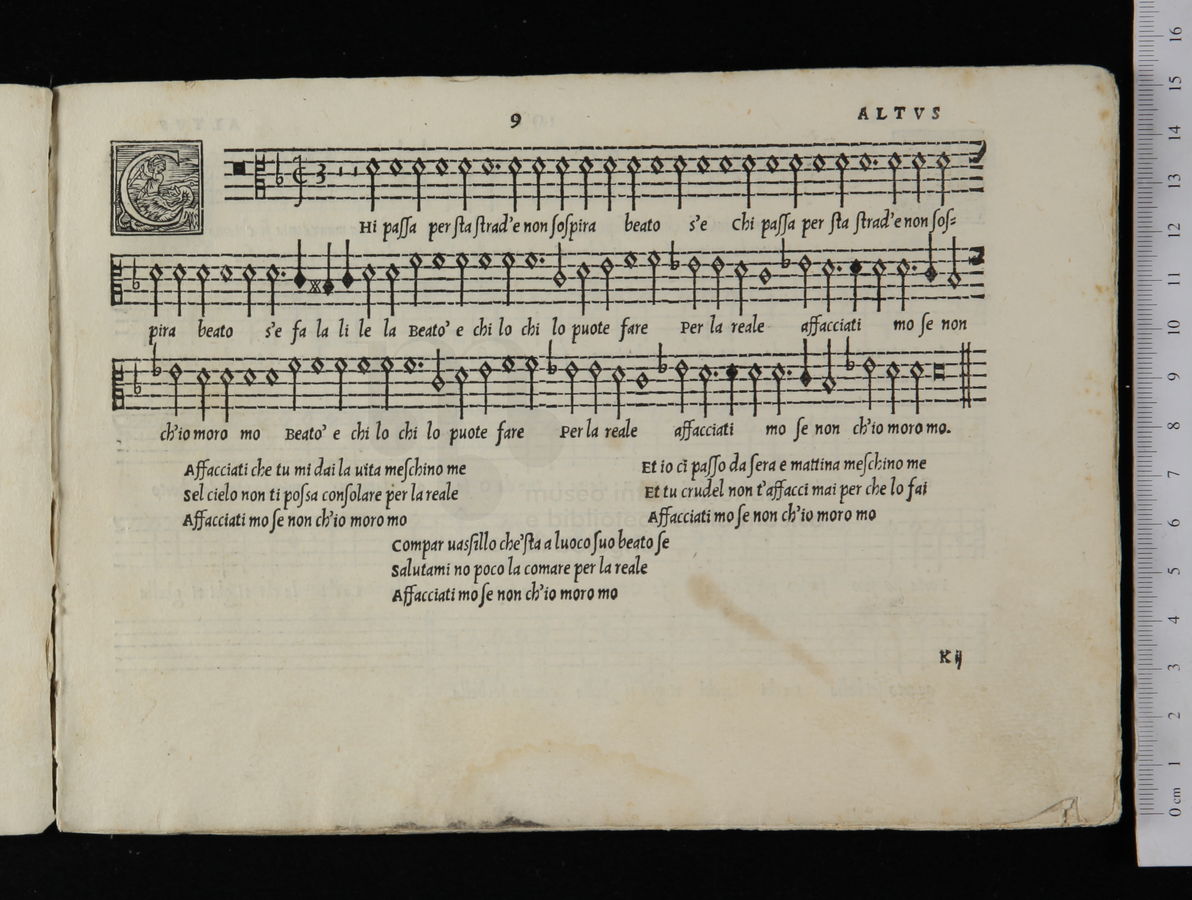 9
ALTVS
CHi paſſa per ſta ſtrad'e non ſoſpira beato s'e Chi paſſa per ſta ſtrad'e non ſoſ=
pira beato s'e fa la li le la Beato' e chi lo chi lo puote fare Per la reale affacciati mo ſe non
ch'io moro mo Beato' e chi lo chi lo puote fare Per la reale affacciati mo ſe non ch'io moro mo.
Affacciati che tu mi dai la uita meſchino me
Sel cielo non ti poſsa conſolare per la reale
Affacciati mo ſe non ch'io moro mo
Et io ci paſſo da ſera e mattina meſchino me
Et tu crudel non t'affacci mai per che lo fai
Affacciati mo ſe non ch'io moro mo
Compar uasſillo che'ſta a luoco ſuo beato ſe
Salutami no poco la comare per la reale
Affacciati mo ſe non ch'io moro mo
K ij
museo
e bibliote
0 cm 1 2 3 4 5 6 7 8 9 10 11 12 13 14 15 16